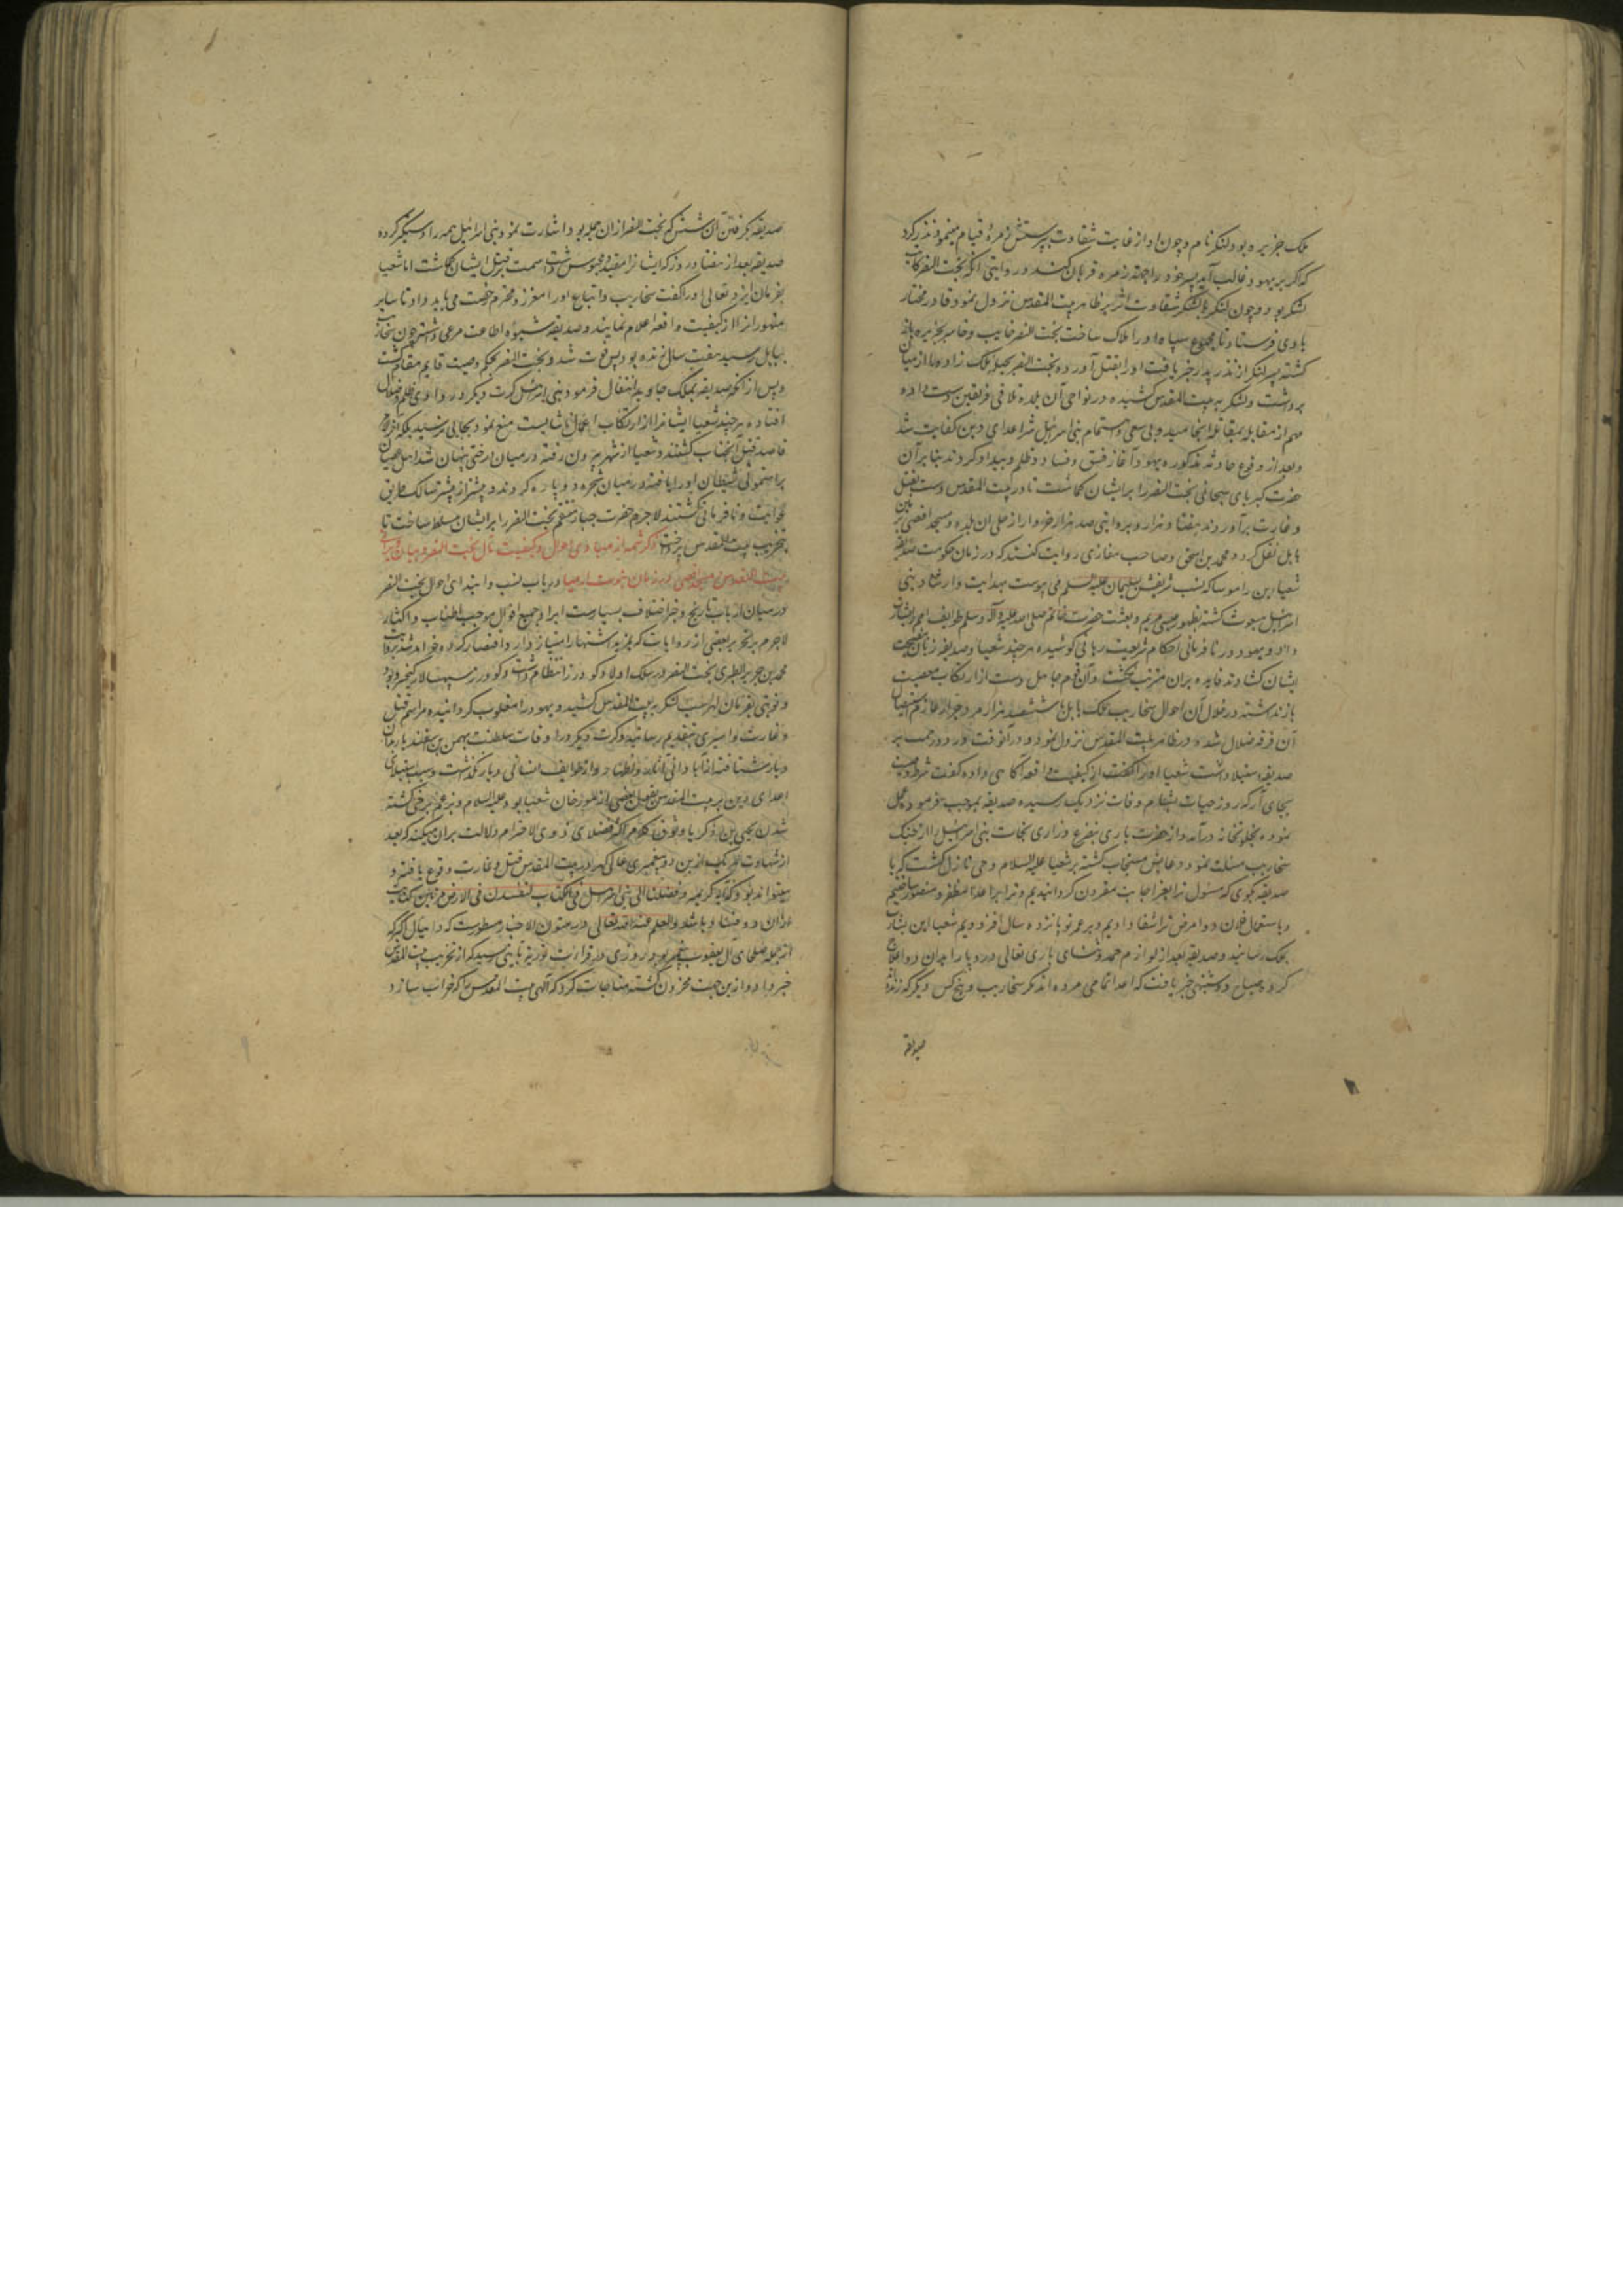 ملک جزیره بود لنکر نام و چون او از غایت شقاوت بپرستش زهره قیام مینمود نذر کرد
که اکر بر یهود غالب آید پسر خود را جهته زهره قربان کند و روایتی آنکه بخت النصر کاتب
لنکر بود و چون لنکر با لشکر شقاوت اثر بر ظاهر بیت المقدس نزول نمود قادر مختار
بادی فرستاد تا مجموع سپاه او را هلاک ساخت بخت النصر خایب و خاسر بجزیره باز
کشته پسر لنکر از نذر پدر خبر یافت او را بقتل آورد و بخت النصر بحیله ملک زاده را از میان
برداشت و لشکر به بیت المقدس کشیده در نواحی آن بلده تلاقی فریقین دست داده
مهم از مقابله بمقاتله انجامید و بی سعی و اهتمام بنی اسرائیل شر اعدای دین کفایت شد
و بعد از وقوع حادثه مذکوره یهود آغاز فسق و فساد و ظلم و بیداد کردند بنابر آن
حضرت کبریای سبحانی بخت النصر را بر ایشان کماشت تا در بیت المقدس دست بقتل
و غارت برآوردند هفتاد هزار و بروایتی صد هزار خروار از حلی آن بلده و مسجد اقصی بزمین
بابل نقل کرد و محمد بن اسحق و صاحب مغازی روایت کنند که در زمان حکومت صدیقه
شعیا ابن راموسا که نسب شریفش بسلیمان علیه السلم می پیوست بهدایت و ارشاد بنی
اسرائیل مبعوث کشته بظهور عیسی مریم و بعثت حضرت خاتم صلی الله علیه و آله و سلم طوایف امم را بشارت
داد و یهود در نافرمانی احکام شریعت ربانی کوشیده هر چند شعیا و صدیقه زبان بنصیحت
ایشان کشادند فایده بران مترتب نکشت و آن قوم جاهل دست از ارتکاب معصیت
باز نداشتند در خلال آن احوال سخاریب ملک بابل با ششصد هزار مرد جرار عازم استیصال
آن فرقه ضلال شد و در ظاهر بیت المقدس نزول نمود و در آنوقت ورد و رحمت بر
صدیقه استیلا داشت شعیا او را کفت از کیفیت واقعه آکاهی داده کفت شرط وصیت
بجای آر که روز حیات بشام وفات نزدیک رسیده صدیقه بموجب فرموده عمل
نموده بخلوتخانه درآمد و از حضرت باری بتضرع و زاری نجات بنی اسرائیل را از جنک
سخاریب مسئلت نمود و دعایش مستجاب کشته بر شعیا علیه السلام وحی نازل کشت که با
صدیقه بکوی که مسئول ترا بعز اجابت مقرون کردانیدیم و ترا بر اعدا مظفر و منصور ساختیم
و باستعمال فلان دوا مرض ترا شفا دادیم و بر عمر تو پانزده سال افزودیم شعیا این بشارت
بملک رسانید و صدیقه بعد از لوازم حمد و ثنای باری تعالی درد پا را بدان دوا علاج
کرد و صباح دوشنبه خبر یافت که اعدا تمامی مرده اند مکر سخاریب و پنج کس دیکر که زنده اند
صدیقه
صدیقه بکرفتن آن شش کس که بخت النصر ازان جمله بود اشارت نمود بنی اسرائیل همه را دستکیر کرده
صدیقه بعد از هفتاد روز که ایشانرا مقید و محبوس داشت همت بر قتل ایشان کماشت اما شعیا
بفرمان ایزد تعالی او را کفت سخاریب و اتباع او را معزز و محترم رخصت می باید داد تا سایر
متهوران را از کیفیت واقعه اعلام نمایند و صدیقه شیوه اطاعت مرعی داشته چون سخاریب
ببابل رسید هفت سال زنده بود پس فوت شد و بخت النصر بحکم وصیت قایم مقام کشت
و پس از آنکه صدیقه بملک جاوید انتقال فرمود بنی اسرائیل کرت دیکر در وادی ظلم و ضلال
افتاده هر چند شعیا ایشانرا از ارتکاب اعمال ناشایست منع نمود بجایی نرسید بلکه آخر الامر
قاصد قتل آنجناب کشتند و شعیا از شهر بیرون رفته در میان درختی پنهان شد اهل عصیان
برهنمونی شیطان او را یافته در میان شجره دو پاره کردند و بیشتر از پیشتر سالک طریق
غوایت و نافرمانی کشتند لاجرم حضرت جبار منتقم بخت النصر را بر ایشان مسلط ساخت تا
بتخریب بیت المقدس پرداخت ذکر شمه از مبادی احوال و کیفیت مآل بخت النصر و بیان خرابی
بیت المقدس و مسجد اقصی در زمان نبوت ارمیا در باب نسب و ابتدای احوال بخت النصر
در میان ارباب تاریخ و خبر اختلاف بسیارست ایراد جمیع اقوال موجب اطناب و اکثار
لاجرم بر تحریر بعضی از روایات که بمزید اشتهار امتیاز دارد اقتصار کرده خواهد شد بروایت
محمد بن جریر الطبری بخت النصر در سلک اولاد کودرز انتظام داشت و کودرز سپهسالار کیخسرو بود
و نوبتی بفرمان لهراسب لشکر به بیت المقدس کشید و یهود را مغلوب کردانیده مراسم قتل
و غارت و اسیری بتقدیم رسانید و کرت دیکر در اوقات سلطنت بهمن بن اسفندیار بدان
دیار شتافته از آبادانی آثار و از طوایف انسانی دیار نکذاشت و سبب استیلای
اعدای دین بر بیت المقدس بقول بعضی از مورخان شعیا بود علیه السلام و بزعم برخی کشته
شدن یحیی بن زکریا و فحوای کلام اکثر فضلای ذوی الاحترام دلالت بران میکند که بعد
از شهادت هر یک از این دو پیغمبر عالی کهر در بیت المقدس قتل و غارت وقوع یافته و
میتواند بود که آیه کریمه و قضینا الی بنی اسرائیل فی الکتاب لتفسدن فی الارض مرتین کنایت
ازان دو فساد باشد و العلم عند الله تعالی و در متون الاخبار مسطورست که دانیال اکبر که
از جمله صلحای آل یعقوب پیغمبر بود روزی در قرائت توریة بآیتی رسید که از تخریب بیت المقدس
خبر داد و ازین جهت محزون کشته مناجات کرد که الهی بیت المقدس را که خراب سازد